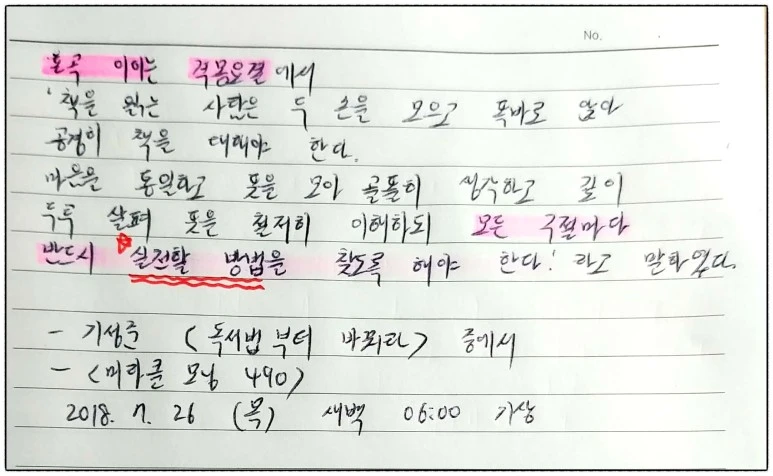 No.
율곡 이이는 격몽요결에서
'책을 읽는 사람은 두 손을 모으고 똑바로 앉아
공경히 책을 대해야 한다.
마음을 통일하고 뜻을 모아 골똘히 생각하고 깊이
두루 살펴 뜻을 철저히 이해하되 모든 구절마다
반드시 실천할 방법을 찾도록 해야 한다!' 라고 말하였다.
- 기성준 <독서법부터 바꿔라> 중에서
- <미라클 모닝 490>
2018. 7. 26 (목) 새벽 06:00 기상